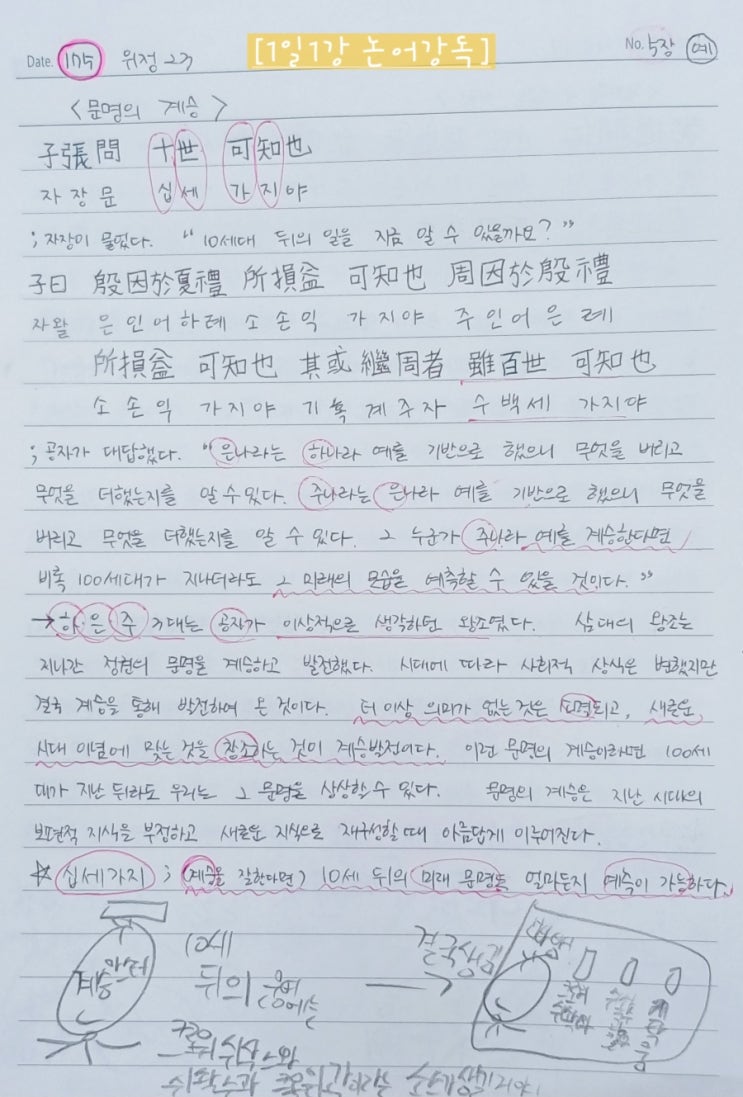 [1일1강 논어강독]
Date. 175 위정 23 No. 5장 예
<문명의 계승>
子張問 十世 可知也
자장문 십세 가지야
; 자장이 물었다. "10세대 뒤의 일을 지금 알 수 있을까요?"
子曰 殷因於夏禮 所損益 可知也 周因於殷禮
자왈 은인어하례 소손익 가지야 주인어은례
所損益 可知也 其或繼周者 雖百世 可知也
소손익 가지야 기혹계주자 수백세 가지야
; 공자가 대답했다. "은나라는 하나라 예를 기반으로 했으니 무엇을 버리고
무엇을 더했는지를 알 수 있다. 주나라는 은나라 예를 기반으로 했으니 무엇을
버리고 무엇을 더했는지를 알 수 있다. 그 누군가 주나라 예를 계승한다면
비록 100세대가 지나더라도 그 미래의 모습을 예측할 수 있을 것이다."
→ 하·은·주 3대는 공자가 이상적으로 생각하던 왕조였다. 삼대의 왕조는
지나간 정현의 문명을 계승하고 발전했다. 시대에 따라 사회적 상식은 변했지만
결국 계승을 통해 발전하여 온 것이다. 더 이상 의미가 없는 것은 도려되고, 새로운
시대 이념에 맞는 것을 창조하는 것이 계승발전이다. 이런 문명의 계승이라면 100세
대가 지난 뒤라도 우리는 그 문명을 상상할 수 있다. 문명의 계승은 지난 시대의
보편적 지식을 부정하고 새로운 지식으로 재구성할 때 아름답게 이루어진다.
☆ 십세가지 ; (계승을 잘한다면) 10세 뒤의 미래 문명도 얼마든지 예측이 가능하다.
계승 마스터
10세
뒤의
결국생김